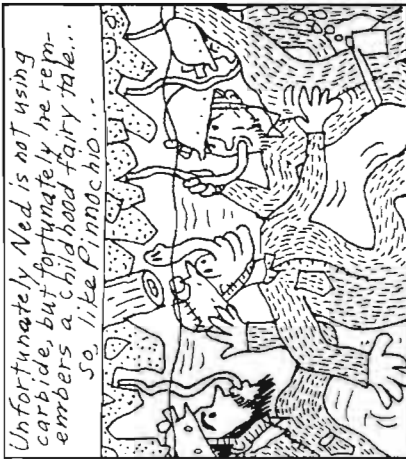 Unfortunately Ned is not using
carbide, but fortunately he rem-
embers a childhood fairy tale...
So, like Pinnochio...